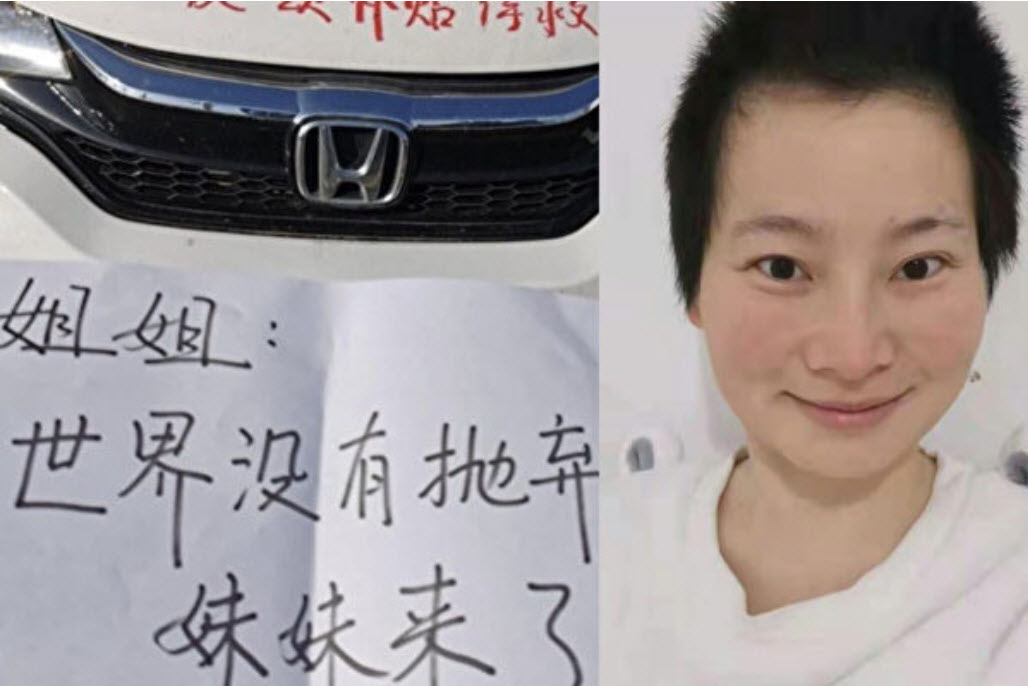 姐姐：
世界没有抛弃
妹妹来了